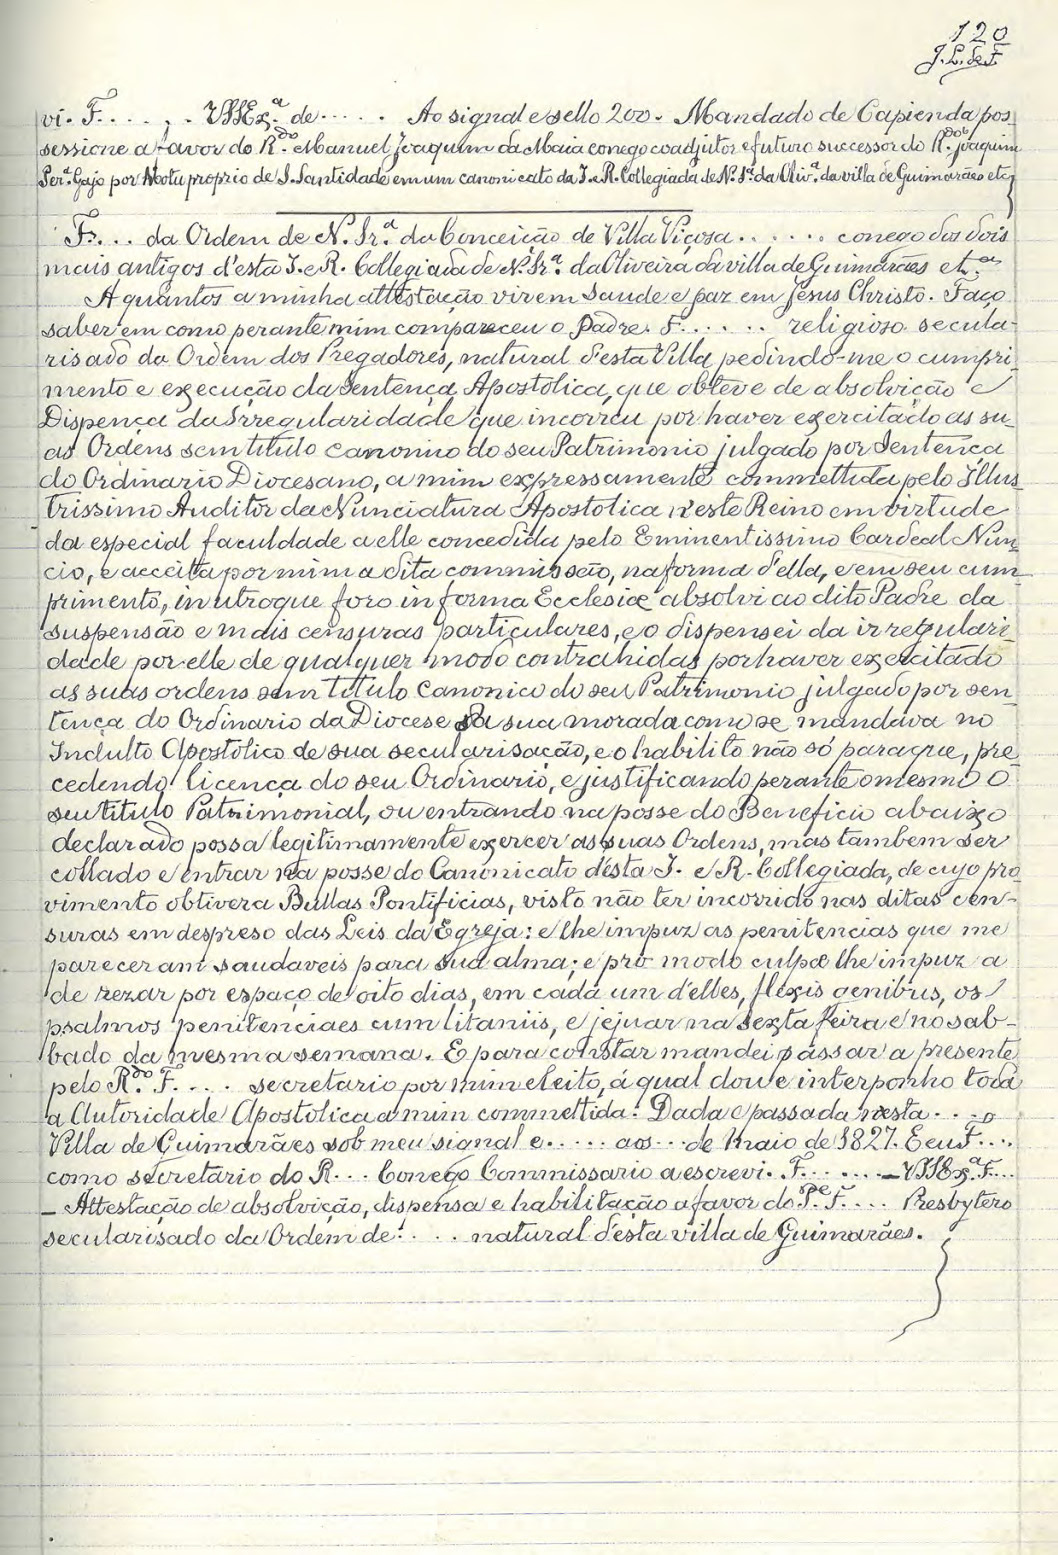 120
J. L. de F.
vi. F. . . . , . VSSEx.ª de . . . . . Ao signal e sello 200. Mandado de Capienda pos-
sessione a favor do R.do Manuel Joaquim da Maia conego coadjutor e futuro successor do R.do Joaquim
Per.ª Gajo por Mootu proprio de S. Santidade em um canonicato da I. e R. Collegiada de N. Sr.ª da Oliv.ª da villa de Guimarães etc
F. . . . da Ordem de N. Sr.ª da Conceição de Villa Viçosa . . . . . . conego dos dois
mais antigos d'esta I. e R. Collegiada de N. Sr.ª da Oliveira da villa de Guimarães et.
A quantos a minha attestação virem saude e paz em Jesus Christo. Faço
saber em como perante mim compareceu o Padre F. . . . . . religioso secula-
risado da Ordem dos Pregadores, natural d'esta Villa pedindo-me o cumpri-
mento e execução da Sentença Apostolica, que obteve de absolvição e
Dispença da Irregularidade que incorreu por haver exercitado as su-
as Ordens sem titulo canonico do seu Patrimonio julgado por Sentença
do Ordinario Diocesano, a mim expressamente commettida pelo Illus-
trissimo Auditor da Nunciatura Apostolica n'este Reino em virtude
da especial faculdade a elle concedida pelo Eminentissimo Cardeal Nun-
cio, e acceita por mim a dita commissão, na forma d'ella, e em seu cum-
primento, in utroque foro in forma Ecclesiæ absolvi ao dito Padre da
suspensão e mais censuras particulares, e o dispensei da irregulari-
dade por elle de qualquer modo contrahidas por haver exercitado
as suas ordens sem titulo canonico do seu Patrimonio julgado por sen-
tença do Ordinario da Diocese da sua morada como se mandava no
Indulto Apostolico de sua secularisação, e o habilito não só para que, pre-
cedendo licença do seu Ordinario, e justificando perante o mesmo o
seu titulo Patrimonial, ou entrando na posse do Beneficio abaixo
declarado possa legitimamente exercer as suas Ordens, mas tambem ser
collado e entrar na posse do Canonicato d'esta I. e R. Collegiada, de cujo pro-
vimento obtivera Bullas Pontificias, visto não ter incorrido nas ditas cen-
suras em despreso das Leis da Egreja: e lhe impuz as penitencias que me
pareceram saudaveis para sua alma; e pro modo culpæ lhe impuz a
de rezar por espaço de oito dias, em cada um d'elles, flexis genibus, os
psalmos penitenciaes cum litaniis, e jejuar na sexta feira e no sab-
bado da mesma semana. E para constar mandei passar a presente
pelo R.do F. . . . secretario por mim eleito, á qual dou e interponho toda
a Autoridade Apostolica a mim commettida. Dada e passada nesta . . .
Villa de Guimarães sob meu signal e . . . . . aos . . . de Maio de 1827. E eu F. . . .
como secretario do R. . . . Conego Commissario a escrevi. F. . . . . . – VSSEx.ª F. . . .
– Attestação de absolvição, dispensa e habilitação a favor do P.e F. . . . Presbytero
secularisado da Ordem de . . . . natural d'esta villa de Guimarães.